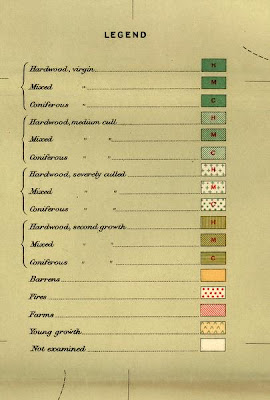 LEGEND
Hardwood, virgin H
Mixed " M
Coniferous " C
Hardwood, medium cull H
Mixed " " M
Coniferous " " C
Hardwood, severely culled H
Mixed " " M
Coniferous " " C
Hardwood, second growth H
Mixed " " M
Coniferous " " C
Barrens
Fires
Farms
Young growth
Not examined